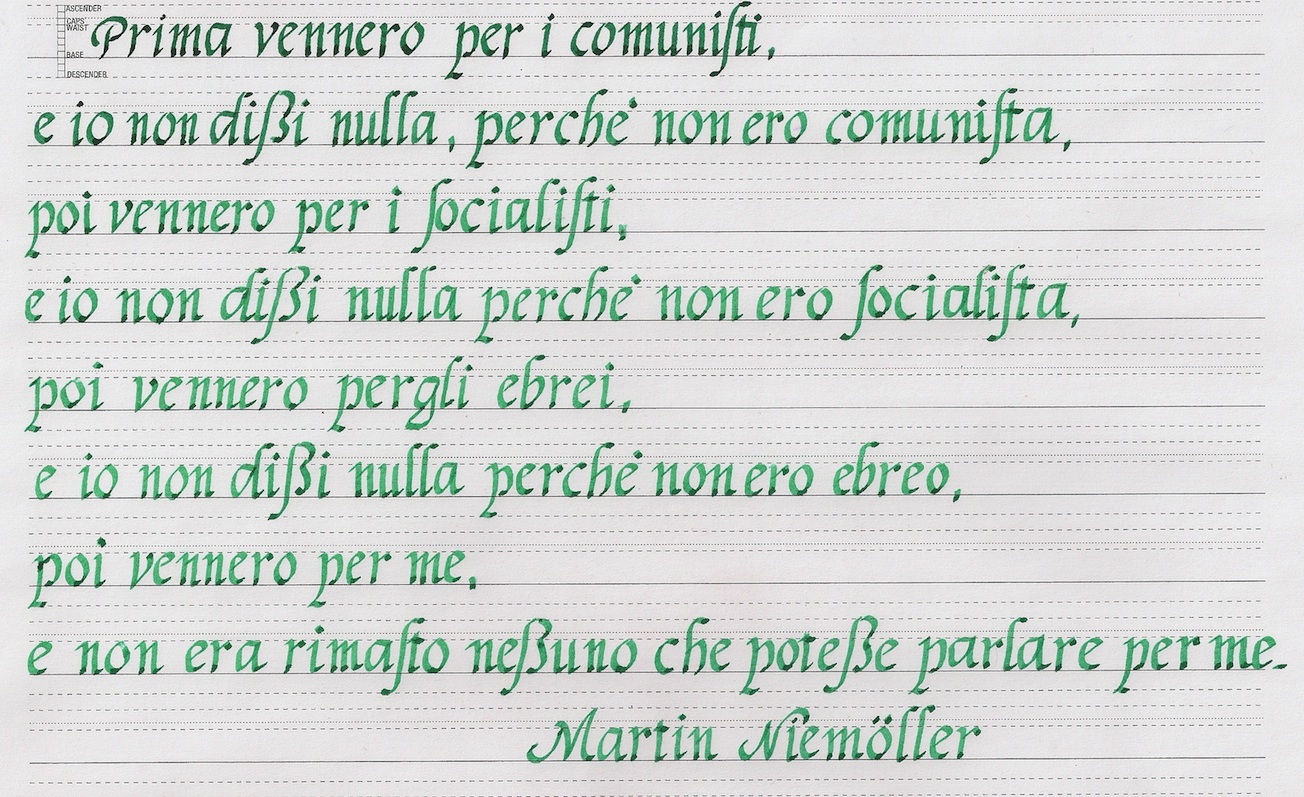 ASCENDER
CAPS
WAIST
BASE
DESCENDER
Prima vennero per i comuniſti,
e io non dißi nulla, perché non ero comuniſta,
poi vennero per i ſocialiſti,
e io non dißi nulla perché non ero ſocialiſta,
poi vennero per gli ebrei,
e io non dißi nulla perché non ero ebreo,
poi vennero per me,
e non era rimaſto neßuno che poteße parlare per me.
Martin Niemöller